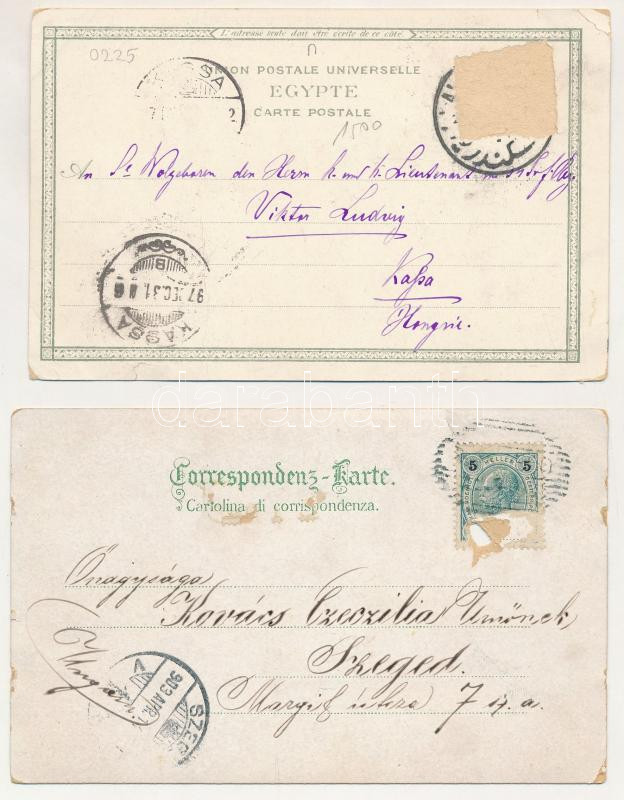 L'adresse seule doit être écrite de ce côté.
0225
UNION POSTALE UNIVERSELLE
EGYPTE
CARTE POSTALE
1500
An Sr Wolgeboren den Herrn k. und k. Lieutenant
Viktor Ludwig
Kassa
Hongrie.
97 DEC. 31
KASSA
darabanth
Correspondenz-Karte.
Cartolina di corrispondenza.
5 HELLER 5
Őnagysága
Kovács Czeczilia Urnőnek
Szeged.
Margit útcza 7 sz. a.
Ungarn
903 APR.
SZEG